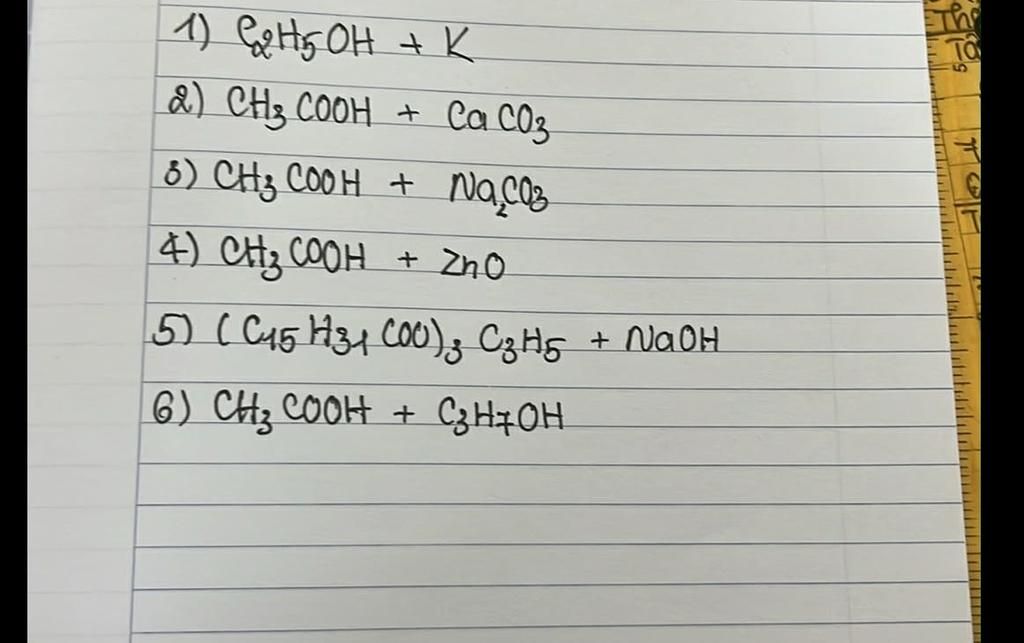 1) C2H5OH + K
2) CH3COOH + CaCO3
3) CH3COOH + Na2CO3
4) CH3COOH + ZnO
5) (C15H31COO)3C3H5 + NaOH
6) CH3COOH + C3H7OH